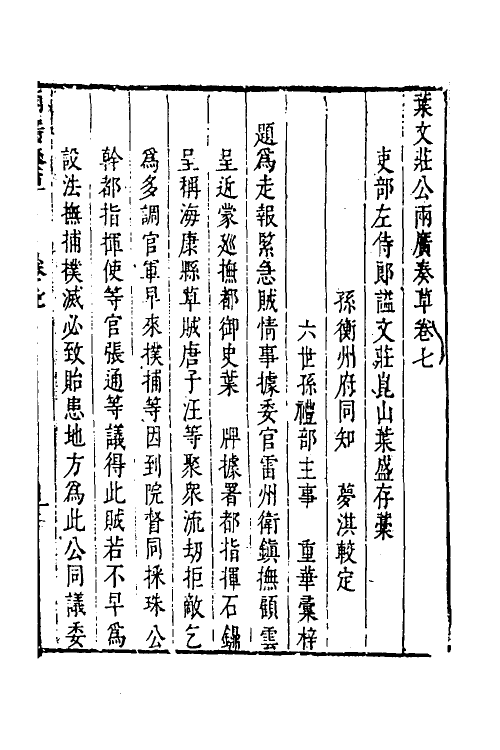 葉文莊公兩廣奏草卷七
吏部左侍郎謚文莊崑山葉盛存藁
孫衡州府同知　夢淇較定
六世孫禮部主事　重華彙梓
題爲走報緊急賊情事據委官雷州衛鎮撫顧雲
呈近蒙廵撫都御史葉　牌據署都指揮石鏽
呈稱海康縣草賊唐子汪等聚衆流劫拒敵乞
爲多調官軍早來撲捕等因到院督同採珠公
幹都指揮使等官張通等議得此賊若不早爲
設法撫捕撲滅必致貽患地方爲此公同議委
卷七